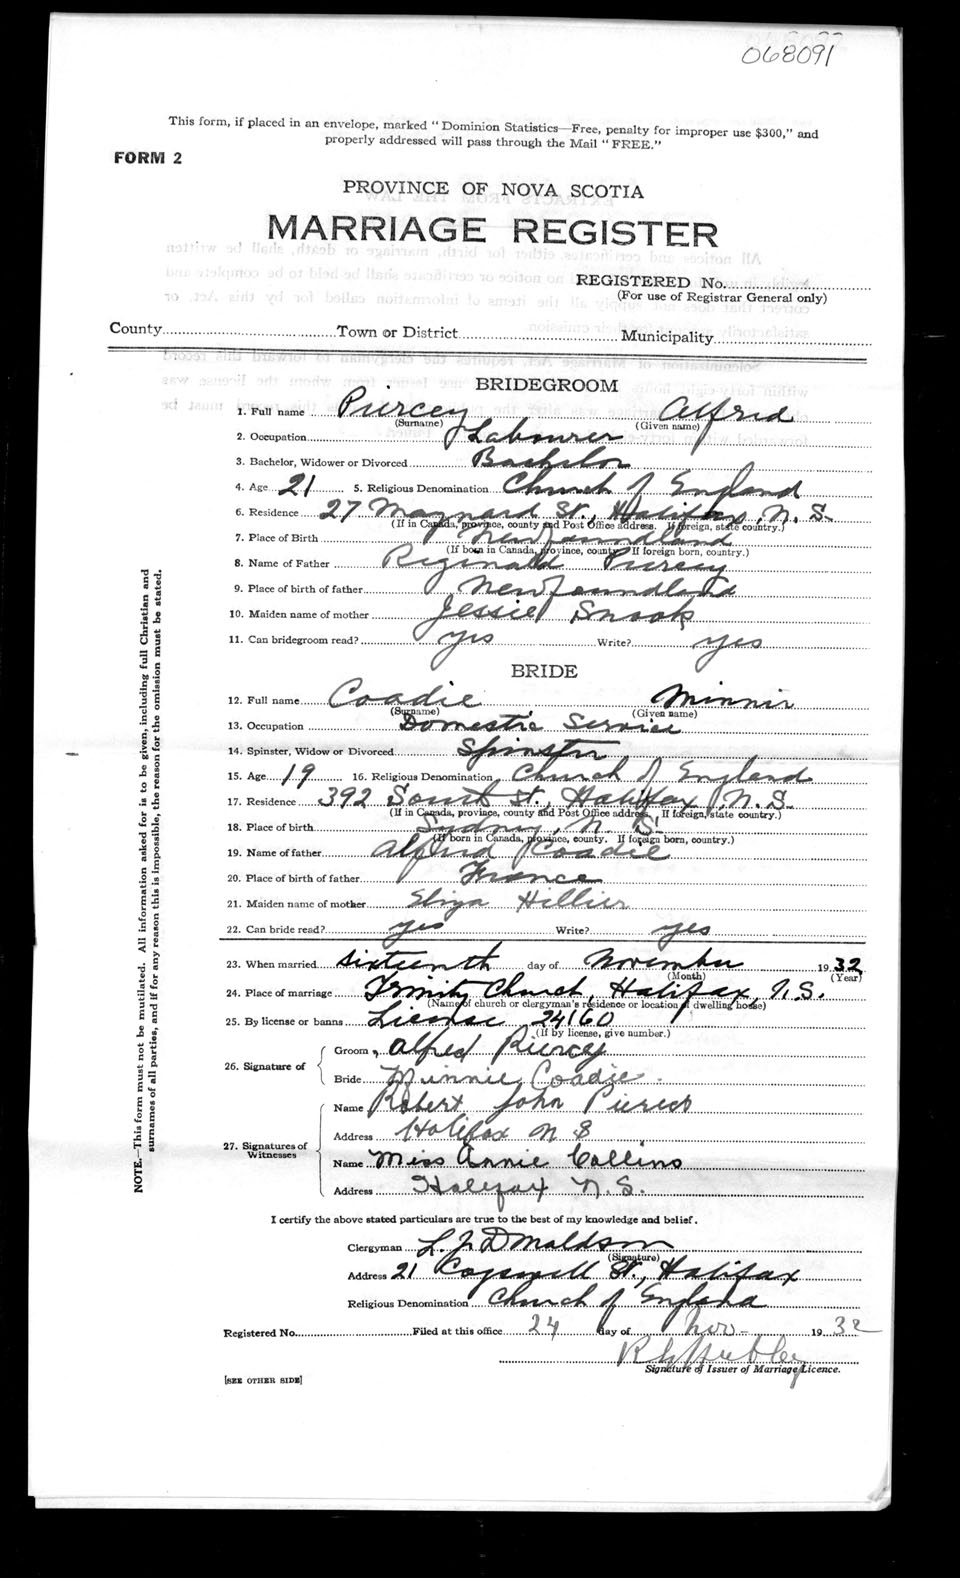 068091
This form, if placed in an envelope, marked "Dominion Statistics—Free, penalty for improper use $300," and
properly addressed will pass through the Mail "FREE."
FORM 2
PROVINCE OF NOVA SCOTIA
MARRIAGE REGISTER
REGISTERED No.
(For use of Registrar General only)
County Town or District Municipality
BRIDEGROOM
1. Full name Piercey Alfred
(Surname) (Given name)
2. Occupation Labourer
3. Bachelor, Widower or Divorced Bachelor
4. Age 21 5. Religious Denomination Church of England
6. Residence 27 Maynard St., Halifax, N. S.
(If in Canada, province, county and Post Office address. If foreign, state country.)
7. Place of Birth Newfoundland
(If born in Canada, province, county. If foreign born, country.)
8. Name of Father Reginald Piercey
9. Place of birth of father Newfoundland
10. Maiden name of mother Jessie Snook
11. Can bridegroom read? yes Write? yes
BRIDE
12. Full name Coadie Minnie
(Surname) (Given name)
13. Occupation Domestic Service
14. Spinster, Widow or Divorced Spinster
15. Age 19 16. Religious Denomination Church of England
17. Residence 392 St., Halifax, N. S.
(If in Canada, province, county and Post Office address, If foreign, state country.)
18. Place of birth Sydney, N. S.
(If born in Canada, province, county. If foreign born, country.)
19. Name of father Alfred Coadie
20. Place of birth of father France
21. Maiden name of mother Eliza Hillier
22. Can bride read? yes Write? yes
23. When married sixteenth day of November 1932
(Month) (Year)
24. Place of marriage Trinity Church, Halifax, N.S.
(Name of church or clergyman's residence or location of dwelling house)
25. By license or banns License 24160
(If by license, give number.)
26. Signature of Groom, Alfred Piercey
Bride Minnie Coadie.
27. Signatures of Witnesses Name Robert John
Address Halifax N S
Name Miss Annie Collins
Address Halifax N. S.
I certify the above stated particulars are true to the best of my knowledge and belief.
Clergyman L. J. Donaldson
(Signature)
Address 21 Cogswell St., Halifax
Religious Denomination Church of England
Registered No. Filed at this office 24 day of Nov- 1932
Signature of Issuer of Marriage Licence.
[SEE OTHER SIDE]
NOTE.—This form must not be mutilated. All information asked for is to be given, including full Christian and
surnames of all parties, and if for any reason this is impossible, the reason for the omission must be stated.